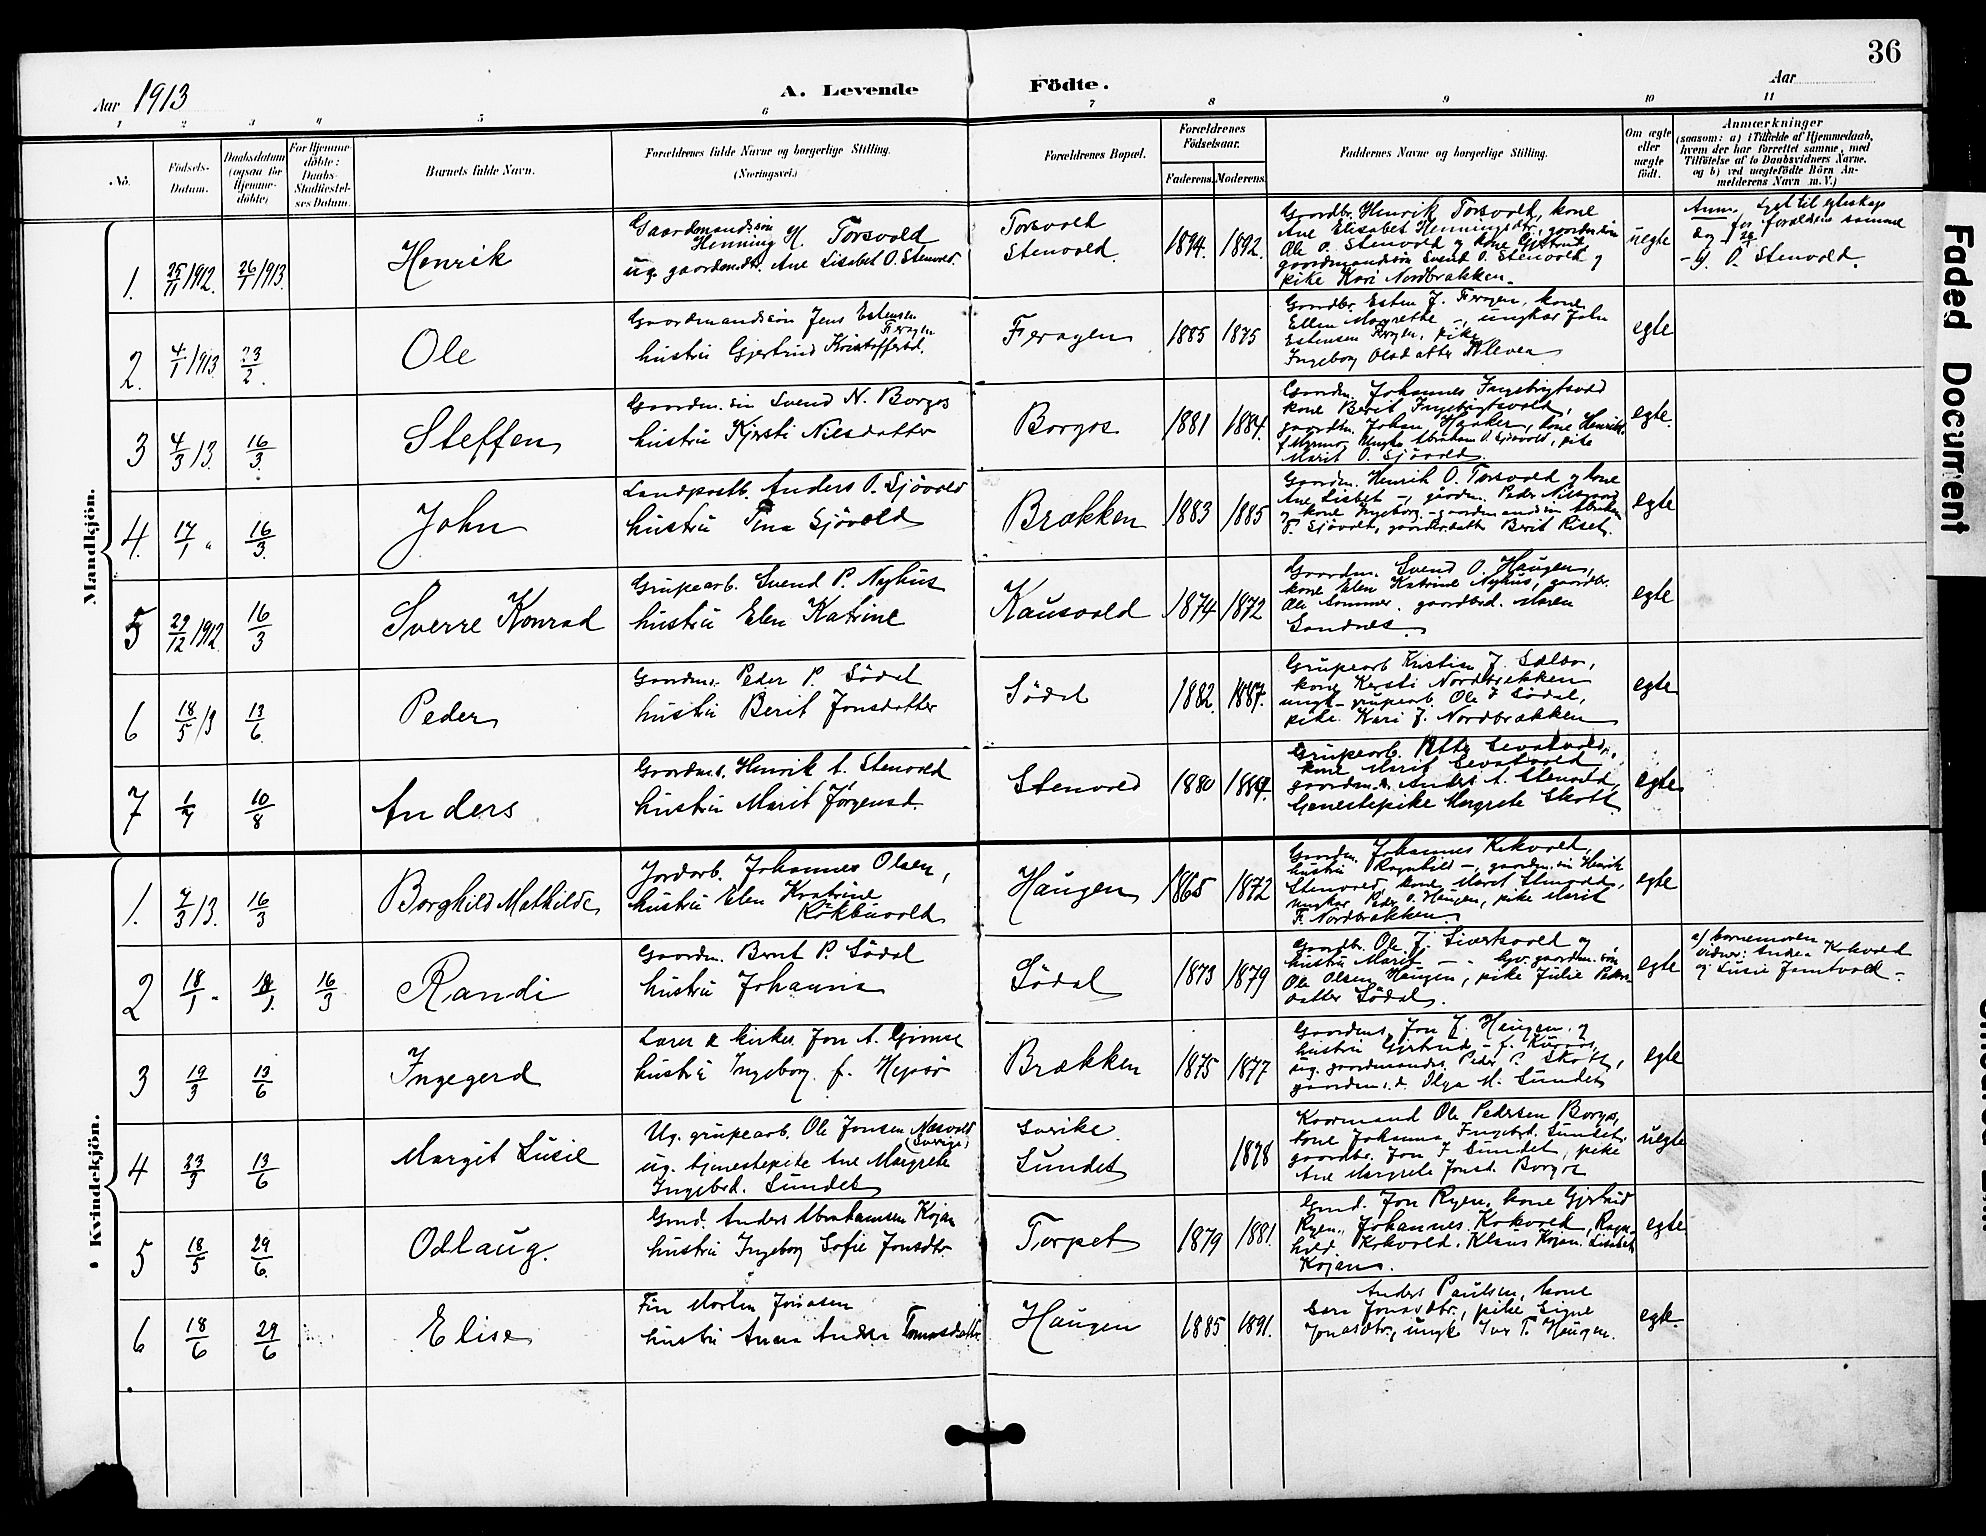 36
Aar 1913
A. Levende Födte.
Aar
1 2 3 4 5 6 7 8 9 10 11
No.
Födsels-
Datum.
Daabsdatum
(ogsaa for
Hjemme-
döbte)
For Hjemme-
döbte:
Daabs-
Stadfæstel-
ses Datum.
Barnets fulde Navn.
Forældrenes fulde Navne og borgerlige Stilling.
(Næringsvei.)
Forældrenes Bopæl.
Forældrenes
Födselsaar.
Faderens. Moderens.
Faddernes Navne og borgerlige Stilling.
Om ægte
eller
uægte
födt.
Anmærkninger
(saasom: a) i Tilfælde af Hjemmedaab,
hvem der har forrettet samme, med
Tilföielse af to Daabsvidners Navne.
og b) ved uægtefödte Börn An-
melderens Navn m. V.)
Mandkjön.
1. 25/11 1912. 26/1 1913. Henrik
Gaardmandssön
Henning H. Torsvold
ug. gaardmdt. Ane Lisabet O. Stenvold.
Torsvold
Stenvold
1894. 1892.
Gaardbr. Henrik Torsvold, kone
Ane Elisabet Henningsdtr., gaardmsön
Ole O. Stenvold og kone Gjertrud
gaardmandssön Svend O. Stenvold og
pike Kari Nordbrækken.
uegte
Anm.
O. Stenvold.
2. 4/1 1913 23/2. Ole
Gaardmandssön Jens Estensen
Feragen
hustru Gjertrud Kristoffersd.
Feragen
1885 1875
Gaardbr. Esten J. Feragen, kone
Ellen Margrethe —, ungkar John
Estensen Feragen, pike
Ingeborg Olsdatter Kleven
egte
3 4/3 13. 16/3. Steffen
Gaardm. sön Svend N. Borgos
hustru Kjersti Nilsdatter
Borgos
1881 1884.
Gaardm. Johannes Ingebrigtsvold
kone Berit Ingebrigtsvold,
gaardm. Johan Haaker, kone Henrikke
f. Myrmo, Ungk. Abraham O. Sjövold, pike
Marit O. Sjövold.
egte.
4. 17/1 " 16/3. John
Landpostb. Anders O. Sjövold
hustru Tina Sjövold
Brækken
1883 1885
Gaardm. Henrik O. Torsvold og kone
Ane Lisbet —, gaardm. Peder Nilsgaard
og kone Ingeborg — gaardmandssön Abraham
O. Sjövold, gaardm.datter Berit Riset.
egte
5 29/12 1912. 16/3 Sverre Konrad
Grubearb. Svend P. Nyhus
hustru Elen Katrine
Kausvold
1874 1872
Gaardm. Svend O. Haugen,
kone Elen Katrine Nyhus, gaardbr.
Ole Sommer, gaardbrd. Maren
Sandnes.
egte
6 18/5 13 13/6. Peder
Gaardm. Peder P. Södal
hustru Berit Jonsdatter
Södal
1882. 1887.
Grubearb Kristian J.
kone Kersti Nordbrækken
ungk. grubearb. Ole J. Södal,
pike Kari J. Nordbrækken
egte
7 1/7 10/8 Anders
Gaardm. Henrik A. Stenvold
hustru Marit Jörgensd.
Stenvold
1880 1884.
Grubearb.
kone Marit
gaardm. Anders A. Stenvold,
tjenestepike Margrete Skott.
egte
Kvindekjön.
1. 7/3 13. 16/3 Borghild Mathilde
Jordarb. Johannes Olsen,
hustru Elen Katrine
Kokbuvold
Haugen
1865 1872
Gaardm. Johannes Kokvold,
hustru Ragnhild —, gaardm. sön Henrik
Stenvold, kone Marit Stenvold,
ungkar Peder O. Haugen, pike Marit
F. Nordbrækken.
egte
2 18/1 " 19/1. 16/3 Randi
Gaardm. Bernt P. Södal
hustru Johanna
Södal
1873 1879
Gaardbr. Ole J. Sivertsvold og
hustru Marit — gaardm. sön
Ole Olsen Haugen, pike Julie Peders-
datter Södal.
egte
a) barnemoren
vidner: Andrea Kokvold
og Lusie Jamtvold —
3 19/3 13/6 Ingegerd
Lærer & kirkes. Jon A. Gjimse
hustru Ingeborg f. Hepsö
Brækken
1875 1877
Gaardm. Jon J. Haugen og
hustru Gjertrud — f. Kurås,
ug. gaardmands. Peder P. Skott,
gaardm. d. Olga M. Sundet
egte
4 23/3 13/6 Margit Lusie
Ug. grubearb. Ole Jonsen Næsvold
(Sverige)
ug. tjenestepike Ane Margrete
Ingebrd. Sundet
Sverike
Sundet
1878
Kaarmand Ole Pedersen Borgos,
kone Johanna Ingebrd. Sundet,
gaardbr. Jon J Sundet, pike
Ane Margrete Jonsd. Borgos
uegte
5 18/5 29/6. Odlaug.
Gmd. Anders Abrahamsen Kojan
hustru Ingeborg Sofie Jonsdtr.
Torpet
1879 1881.
Gmd. Jon Ryen, kone Gjertrud
Ryen, Johannes Kokvold, Ragn-
hild Kokvold. Klaus Kojan. Lisabet
Kojan.
egte
6 18/6 29/6 Elise
Fin Morten Jonasen
hustru Anna Andrea Tomasdatter
Haugen
1885. 1891.
Anders Paulsen, kone
Sara Jonasdtr., pike Signe
Jonasdtr, ungk. Ivar T. Haugen.
egte.
Faded Document